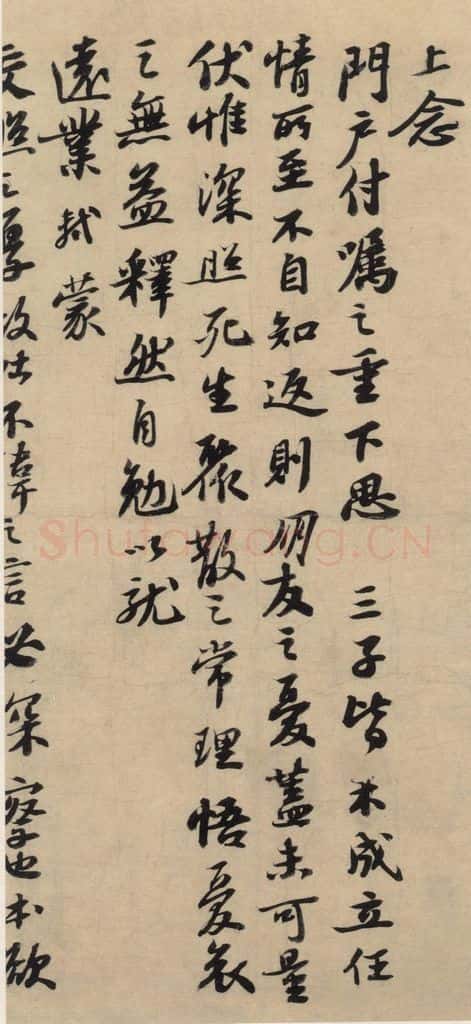 上念
門户付囑之重下思 三子皆未成立任
情所至不自知返則朋友之憂蓋未可量
伏惟深照死生聚散之常理悟憂哀
之無益釋然自勉以就
遠業軾蒙
交照之厚故吐不諱之言必深察也本欲
Shufawang.CN